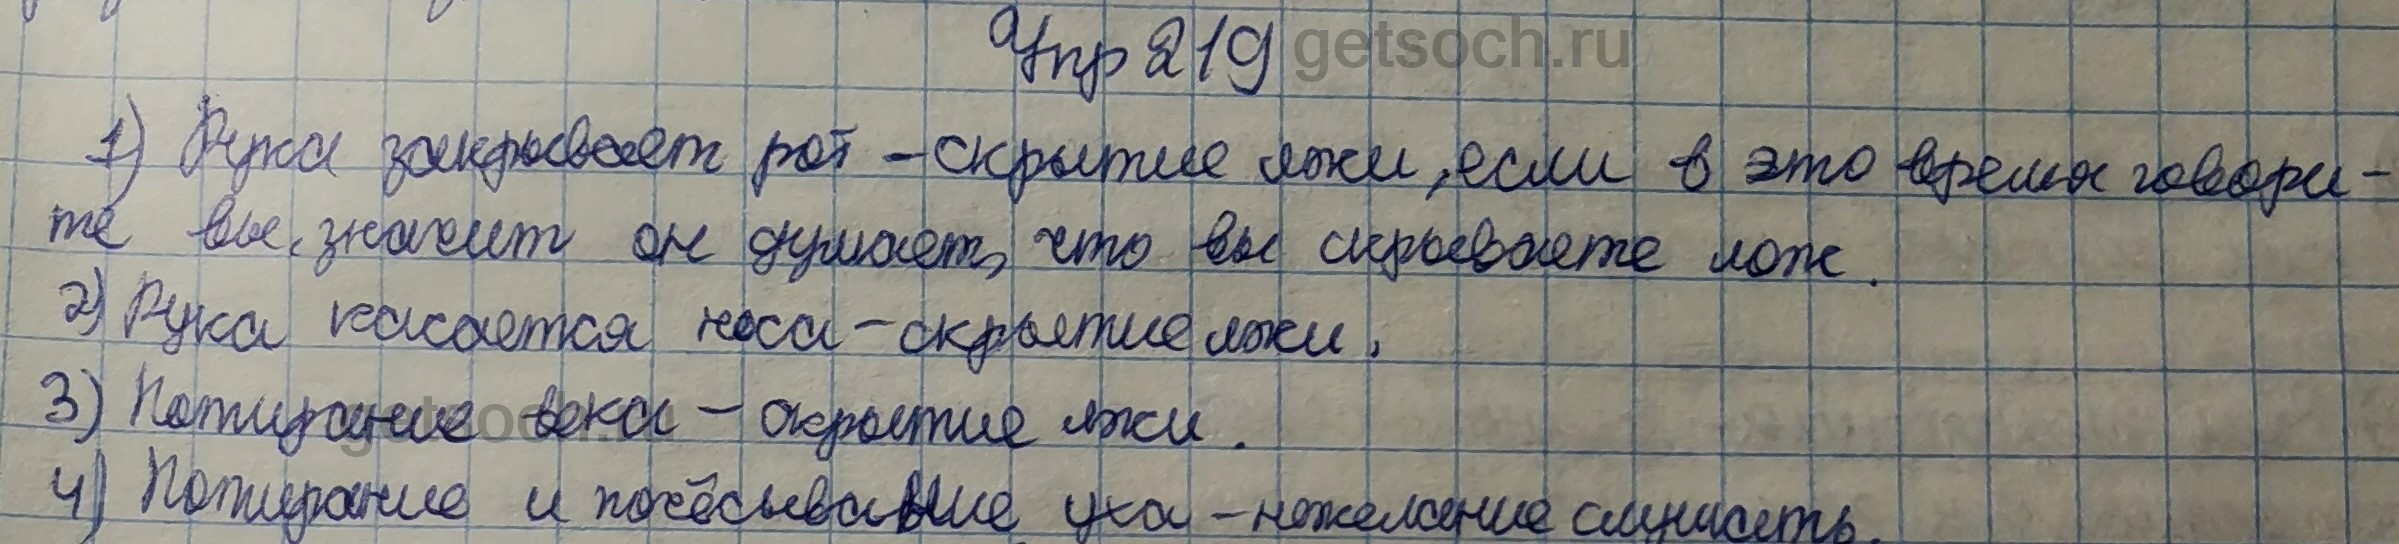 Упр 219 getsoch.ru
1) Рука закрывает рот - скрытие лжи, если в это время говори-
те вы, значит он думает, что вы скрываете лож.
2) Рука касается носа - скрытие лжи.
3) Потирание века - скрытие лжи.
4) Потирание и почёсывание уха - нежелание слушать.